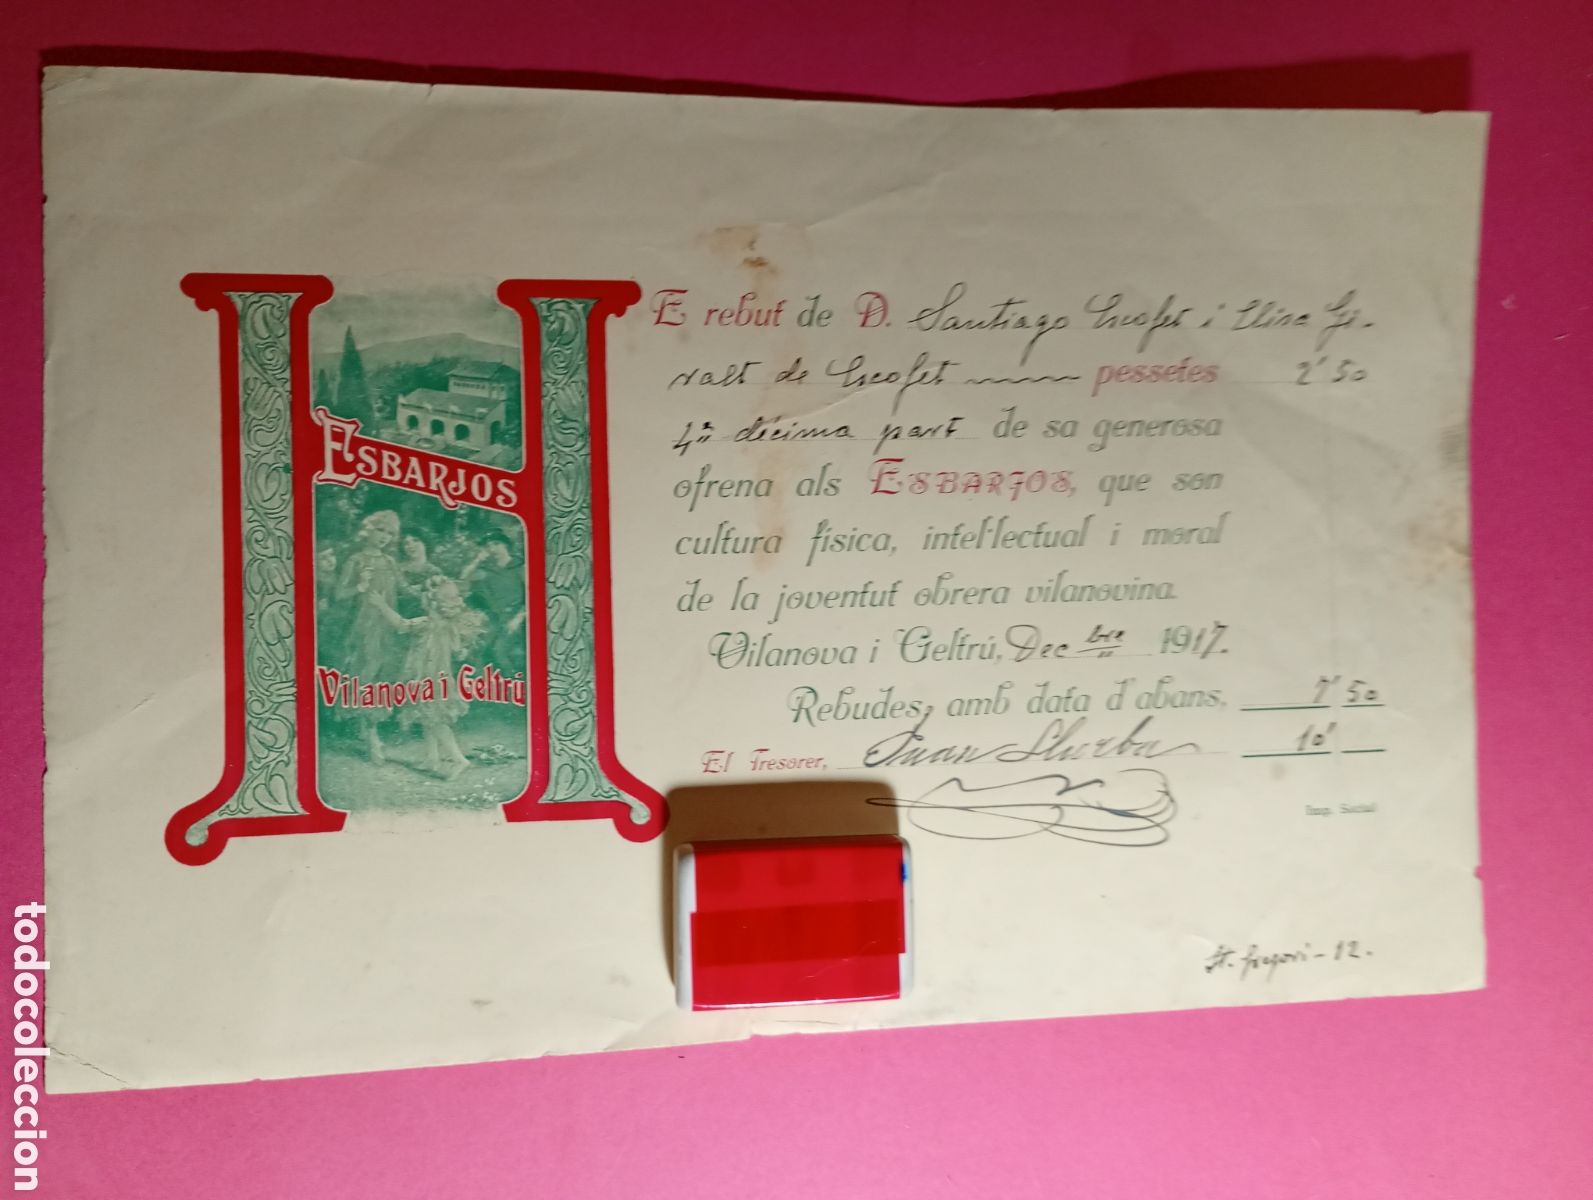 ESBARJOS
Vilanova i Geltrú
HE rebut de D. Santiago Escofet i Elisa Gi-
ralt de Escofet pessetes 2'50
4ª décima part de sa generosa
ofrena als ESBARJOS, que son
cultura física, intel·lectual i moral
de la joventut obrera vilanovina.
Vilanova i Geltrú, Decbre 1917.
Rebudes, amb data d'abans, 7'50
El Tresorer, Juan Llurba 10'
Imp. Social
St. Gregori - 12.
todocoleccion